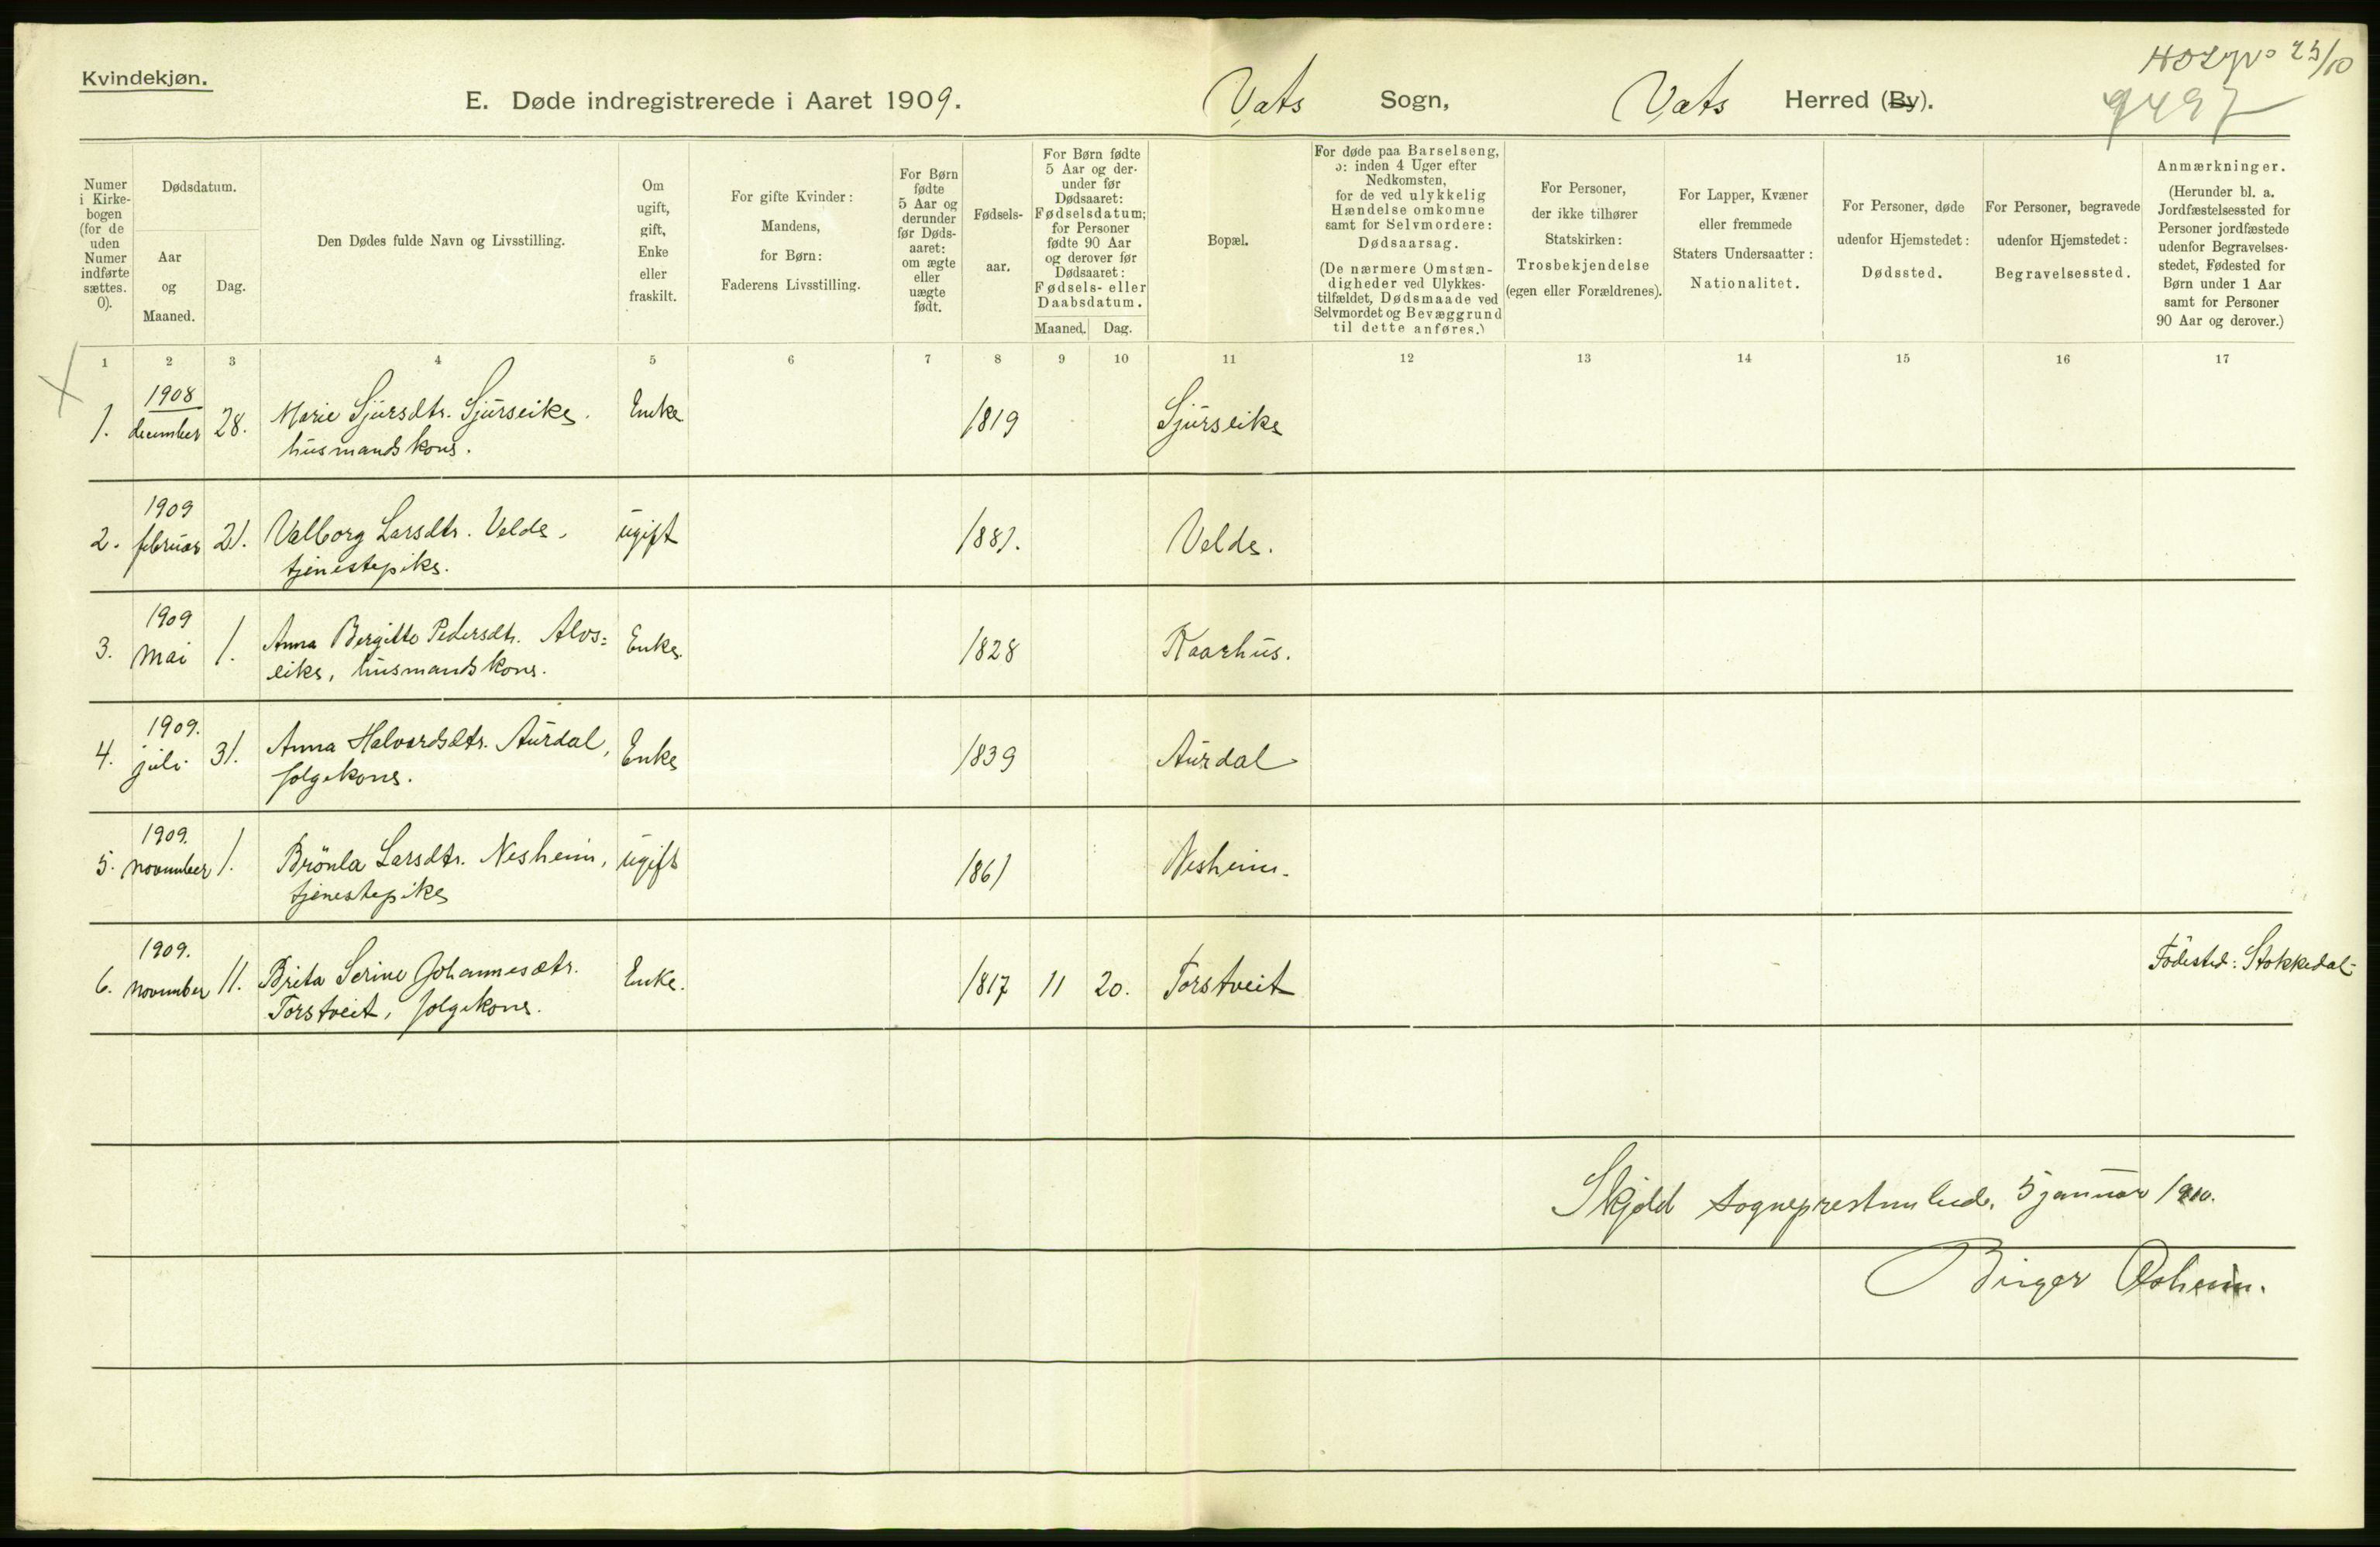 Kvindekjøn.
23/10
9497
E. Døde indregistrerede i Aaret 1909. Vats Sogn, Vats Herred (By).
Numer
i Kirke-
bogen
(for de
uden
Numer
indførte
sættes.
0).
Dødsdatum.
Aar
og
Maaned.
Dag.
Den Dødes fulde Navn og Livsstilling.
Om
ugift,
gift,
Enke
eller
fraskilt.
For gifte Kvinder:
Mandens,
for Børn:
Faderens Livsstilling.
For Børn
fødte
5 Aar og
derunder
før Døds-
aaret:
om ægte
eller
uægte
født.
Fødsels-
aar.
For Børn fødte
5 Aar og der-
under før
Dødsaaret:
Fødselsdatum;
for Personer
fødte 90 Aar
og derover før
Dødsaaret:
Fødsels- eller
Daabsdatum.
Maaned. Dag.
Bopæl.
For døde paa Barselseng,
ɔ: inden 4 Uger efter
Nedkomsten,
for de ved ulykkelig
Hændelse omkomne
samt for Selvmordere:
Dødsaarsag.
(De nærmere Omstæn-
digheder ved Ulykkes-
tilfældet, Dødsmaade ved
Selvmordet og Bevæggrund
til dette anføres.)
For Personer,
der ikke tilhører
Statskirken:
Trosbekjendelse
(egen eller Forældrenes).
For Lapper, Kvæner
eller fremmede
Staters Undersaatter:
Nationalitet.
For Personer, døde
udenfor Hjemstedet:
Dødssted.
For Personer, begravede
udenfor Hjemstedet:
Begravelsessted.
Anmærkninger.
(Herunder bl. a.
Jordfæstelsessted for
Personer jordfæstede
udenfor Begravelses-
stedet, Fødested for
Børn under 1 Aar
samt for Personer
90 Aar og derover.)
1 2 3 4 5 6 7 8 9 10 11 12 13 14 15 16 17
1908
1. december 28. Marie Sjursdtr. Sjurseike. Enke 1819 Sjurseike
husmandskone.
1909
2. februar 21. Valborg Larsdtr. Velde, ugift 1881. Velde.
tjenestepike.
1909
3. mai 1. Anna Bergitte Pedersdtr. Alvs= Enke. 1828 Kaarhus.
eike, husmandskone.
1909.
4. juli 31. Anna Halvardsdtr. Aurdal, Enke 1839 Aurdal
folgekone.
1909.
5. november 1. Brönla Larsdtr. Nesheim, ugift 1861 Nesheim.
tjenestepike
1909.
6. november 11. Brita Serine Johannesdtr. Enke. 1817 11 20. Torstveit Födested: Stokkedal
Torstveit, folgekone.
Skjold sogneprestembede, 5 januar 1910.
Birger